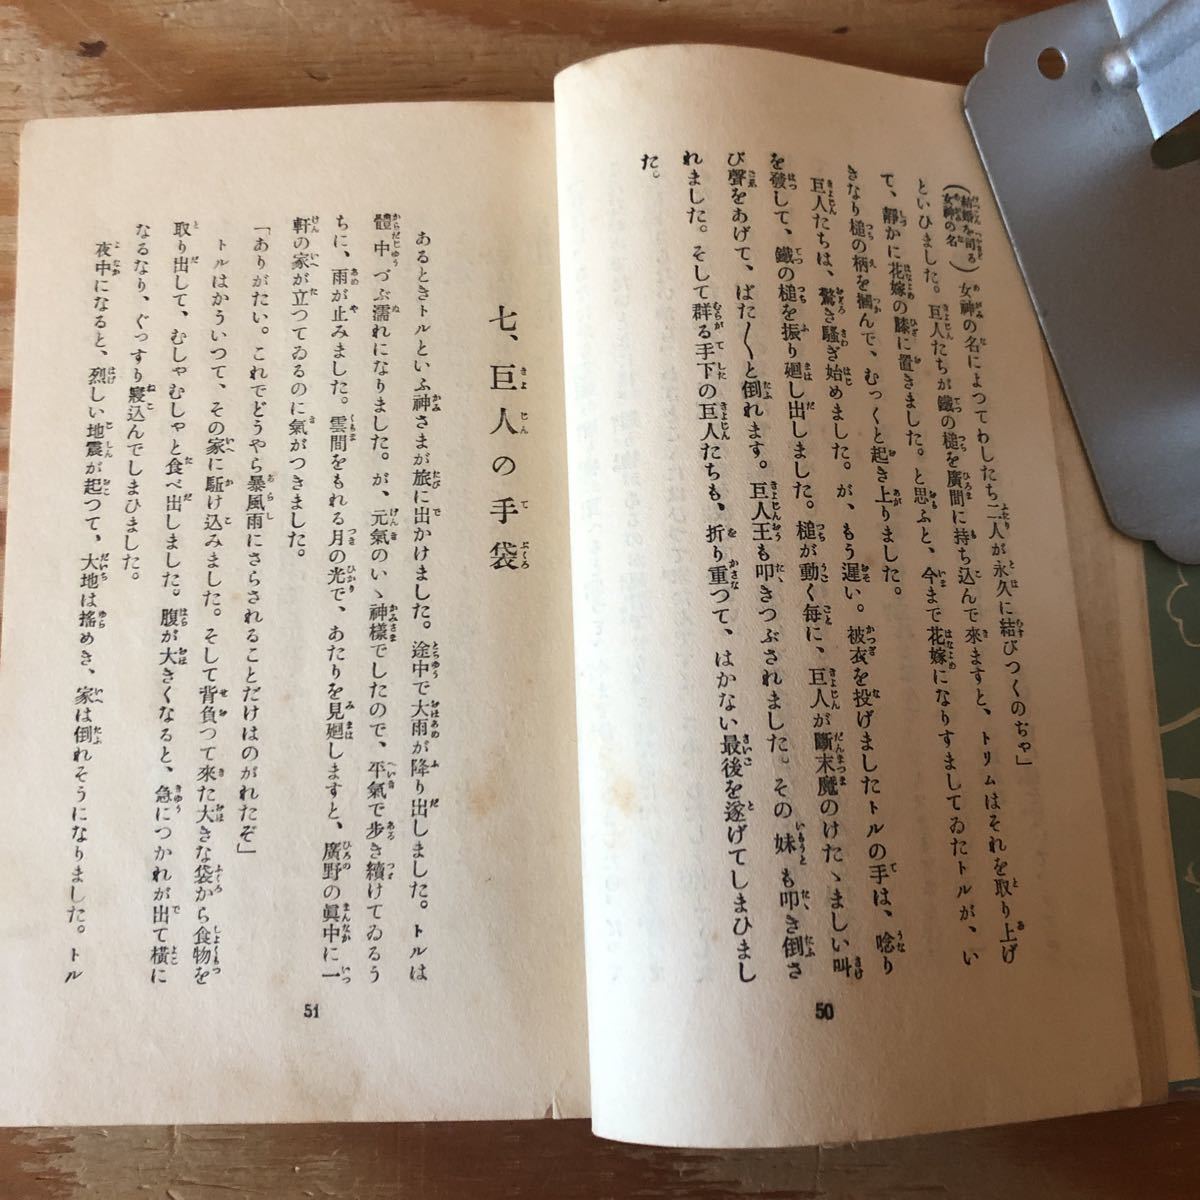 (結婚を司る女神の名)女神の名によつてわしたち二人が永久に結びつくのぢや」
といひました。巨人たちが鐵の槌を廣間に持ち込んで來ますと、トリムはそれを取り上げ
て、靜かに花嫁の膝に置きました。と思ふと、今まで花嫁になりすましてゐたトルが、い
きなり槌の柄を摑んで、むつくと起き上りました。
巨人たちは、驚き騷ぎ始めました。が、もう遲い。被衣を投げましたトルの手は、唸り
を發して、鐵の槌を振り廻し出しました。槌が動く每に、巨人が斷末魔のけたゝましい叫
び聲をあげて、ばた〱と倒れます。巨人王も叩きつぶされました。その妹も叩き倒さ
れました。そして群る手下の巨人たちも、折り重つて、はかない最後を遂げてしまひまし
た。
50
七、巨人の手袋
あるときトルといふ神さまが旅に出かけました。途中で大雨が降り出しました。トルは
體中づぶ濡れになりました。が、元氣のいゝ神樣でしたので、平氣で步き續けてゐるう
ちに、雨が止みました。雲間をもれる月の光で、あたりを見廻しますと、廣野の眞中に一
軒の家が立つてゐるのに氣がつきました。
「ありがたい。これでどうやら暴風雨にさらされることだけはのがれたぞ」
トルはかういつて、その家に駈け込みました。そして背負つて來た大きな袋から食物を
取り出して、むしやむしやと食べ出しました。腹が大きくなると、急につかれが出て橫に
なるなり、ぐつすり寢込んでしまひました。
夜中になると、烈しい地震が起つて、大地は搖めき、家は倒れそうになりました。トル
51